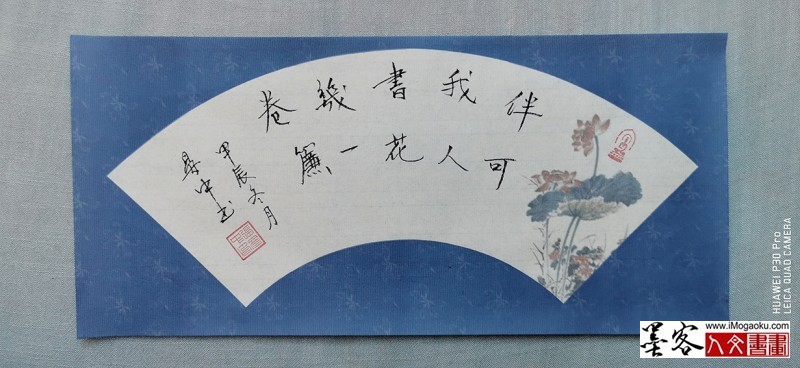 伴我書幾卷
可人花一簾
甲辰冬月
HUAWEI P30 Pro
LEICA QUAD CAMERA
www.iMogaoku.com
墨客
人文書畫